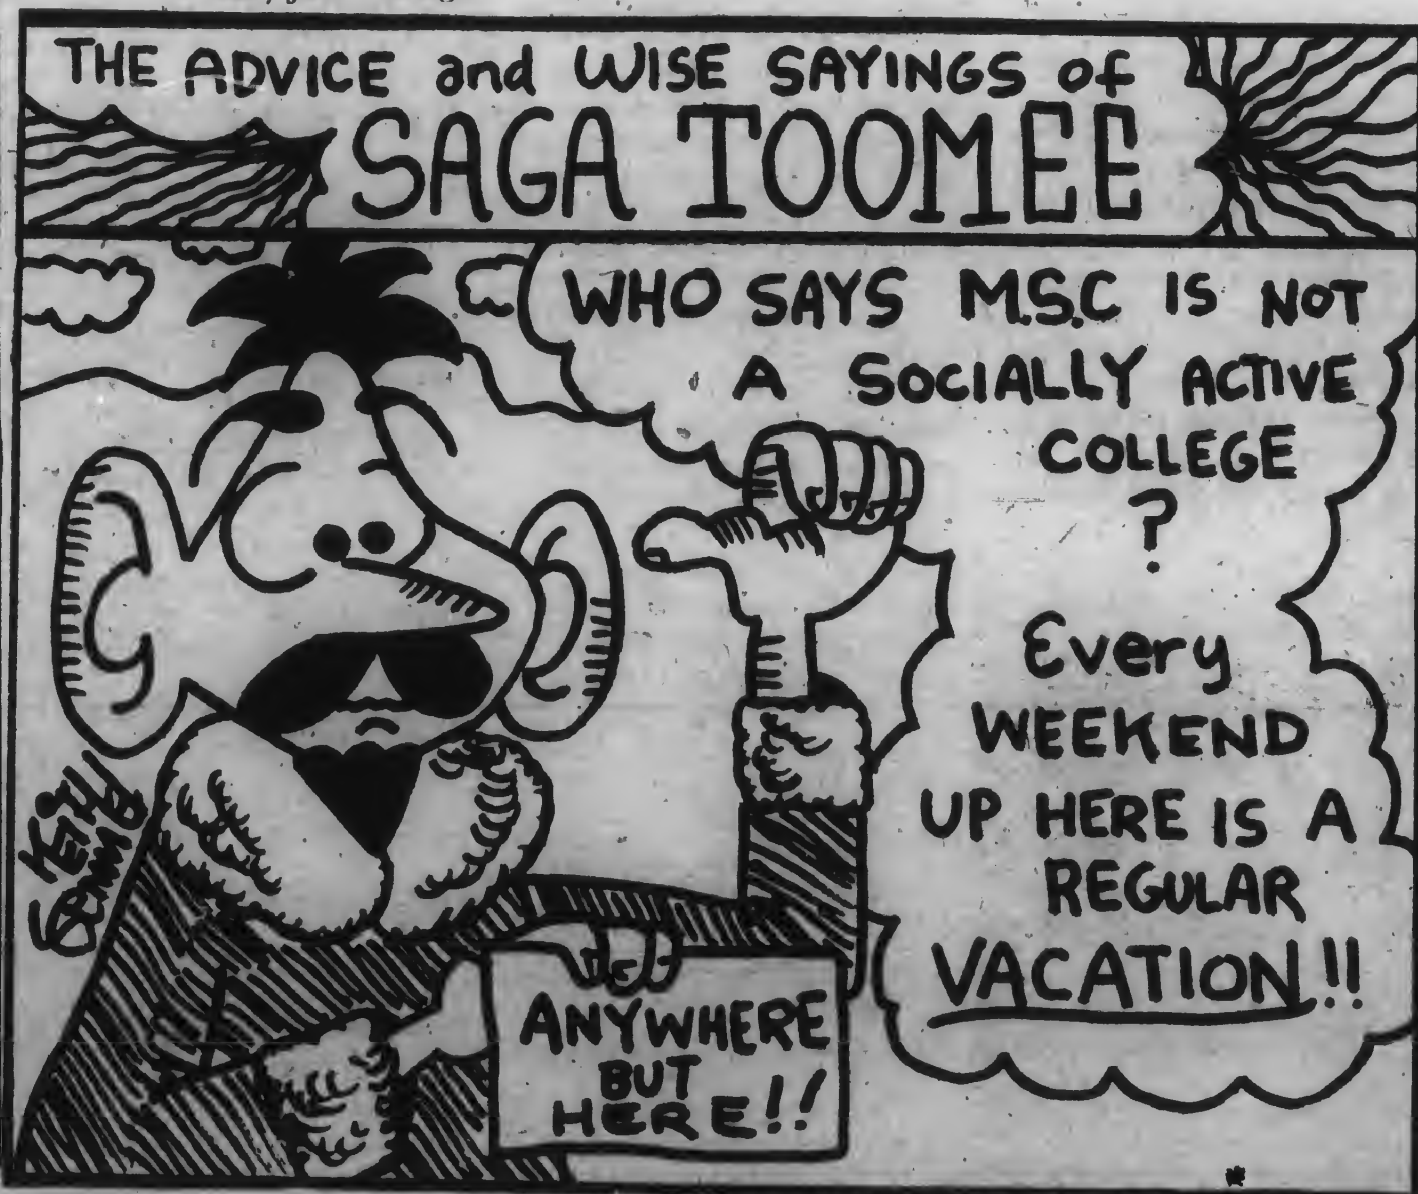 THE ADVICE and WISE SAYINGS of
SAGA TOOMEE
WHO SAYS M.S.C IS NOT
A SOCIALLY ACTIVE
COLLEGE
?
Every
WEEKEND
UP HERE IS A
REGULAR
VACATION!!
ANYWHERE
BUT
HERE!!
KEITH